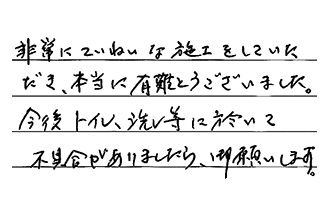 非常にていねいな施工をしていた
だき、本当に有難とうございました。
今後トイレ、洗レ等に於いて
不具合がありましたら、御願いします。